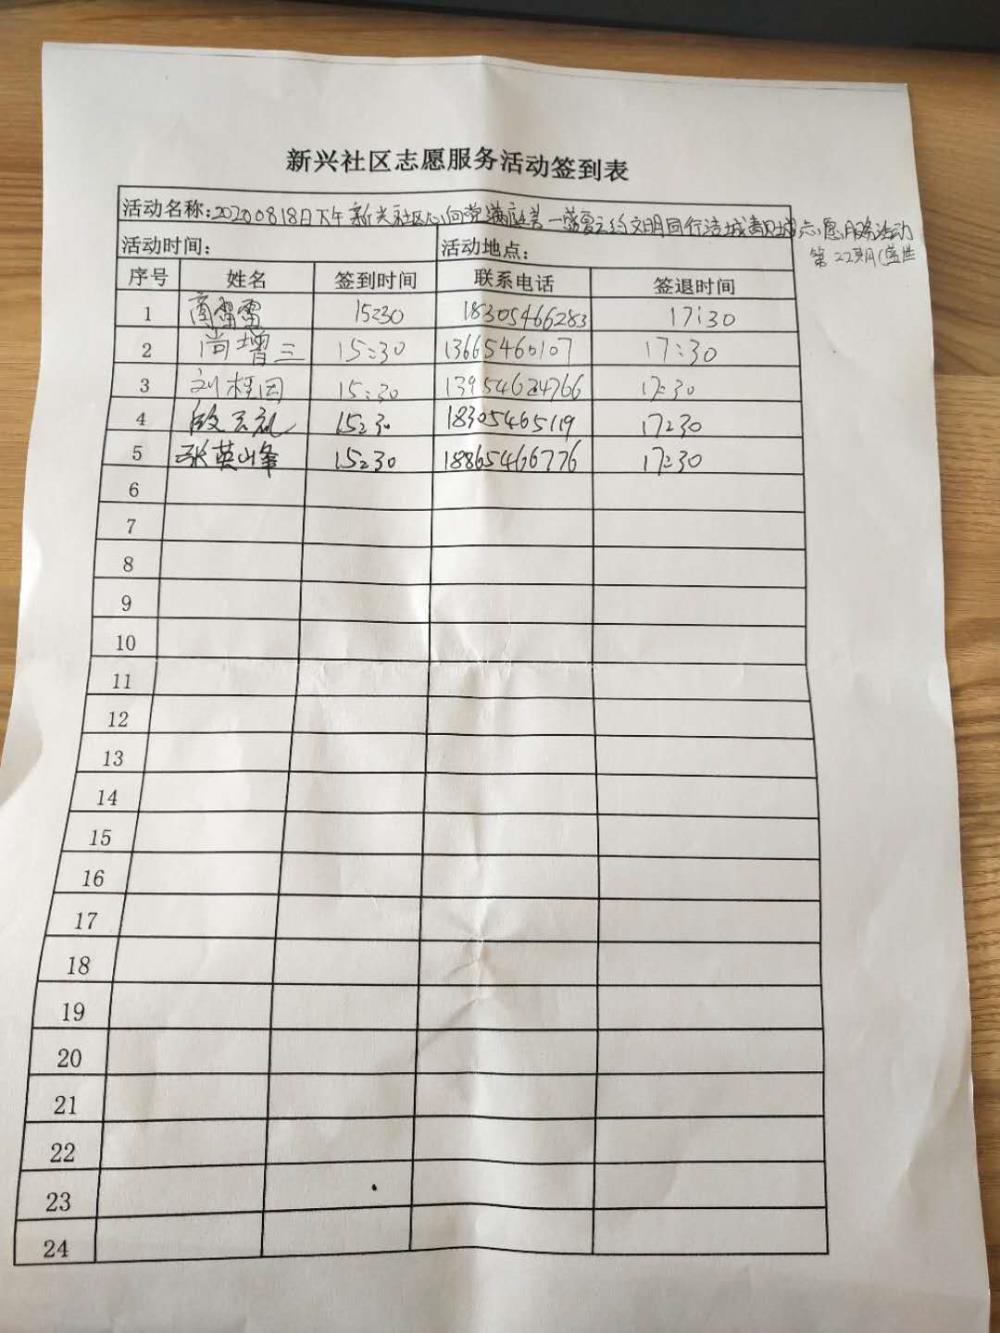 新兴社区志愿服务活动签到表
活动名称:20200818日下午新兴社区心向党满庭美一盛夏之约文明同行洁城靓城志愿服务活动
第22期(盛世
活动时间: 活动地点:
序号 姓名 签到时间 联系电话 签退时间
1 商雷雷 15:30 18305466283 17:30
2 尚增三 15:30 13665460107 17:30
3 刘桂因 15:30 13954624766 17:30
4 15:30 18305465119 17:30
5 张英峰 15:30 18865466776 17:30
6
7
8
9
10
11
12
13
14
15
16
17
18
19
20
21
22
23
24